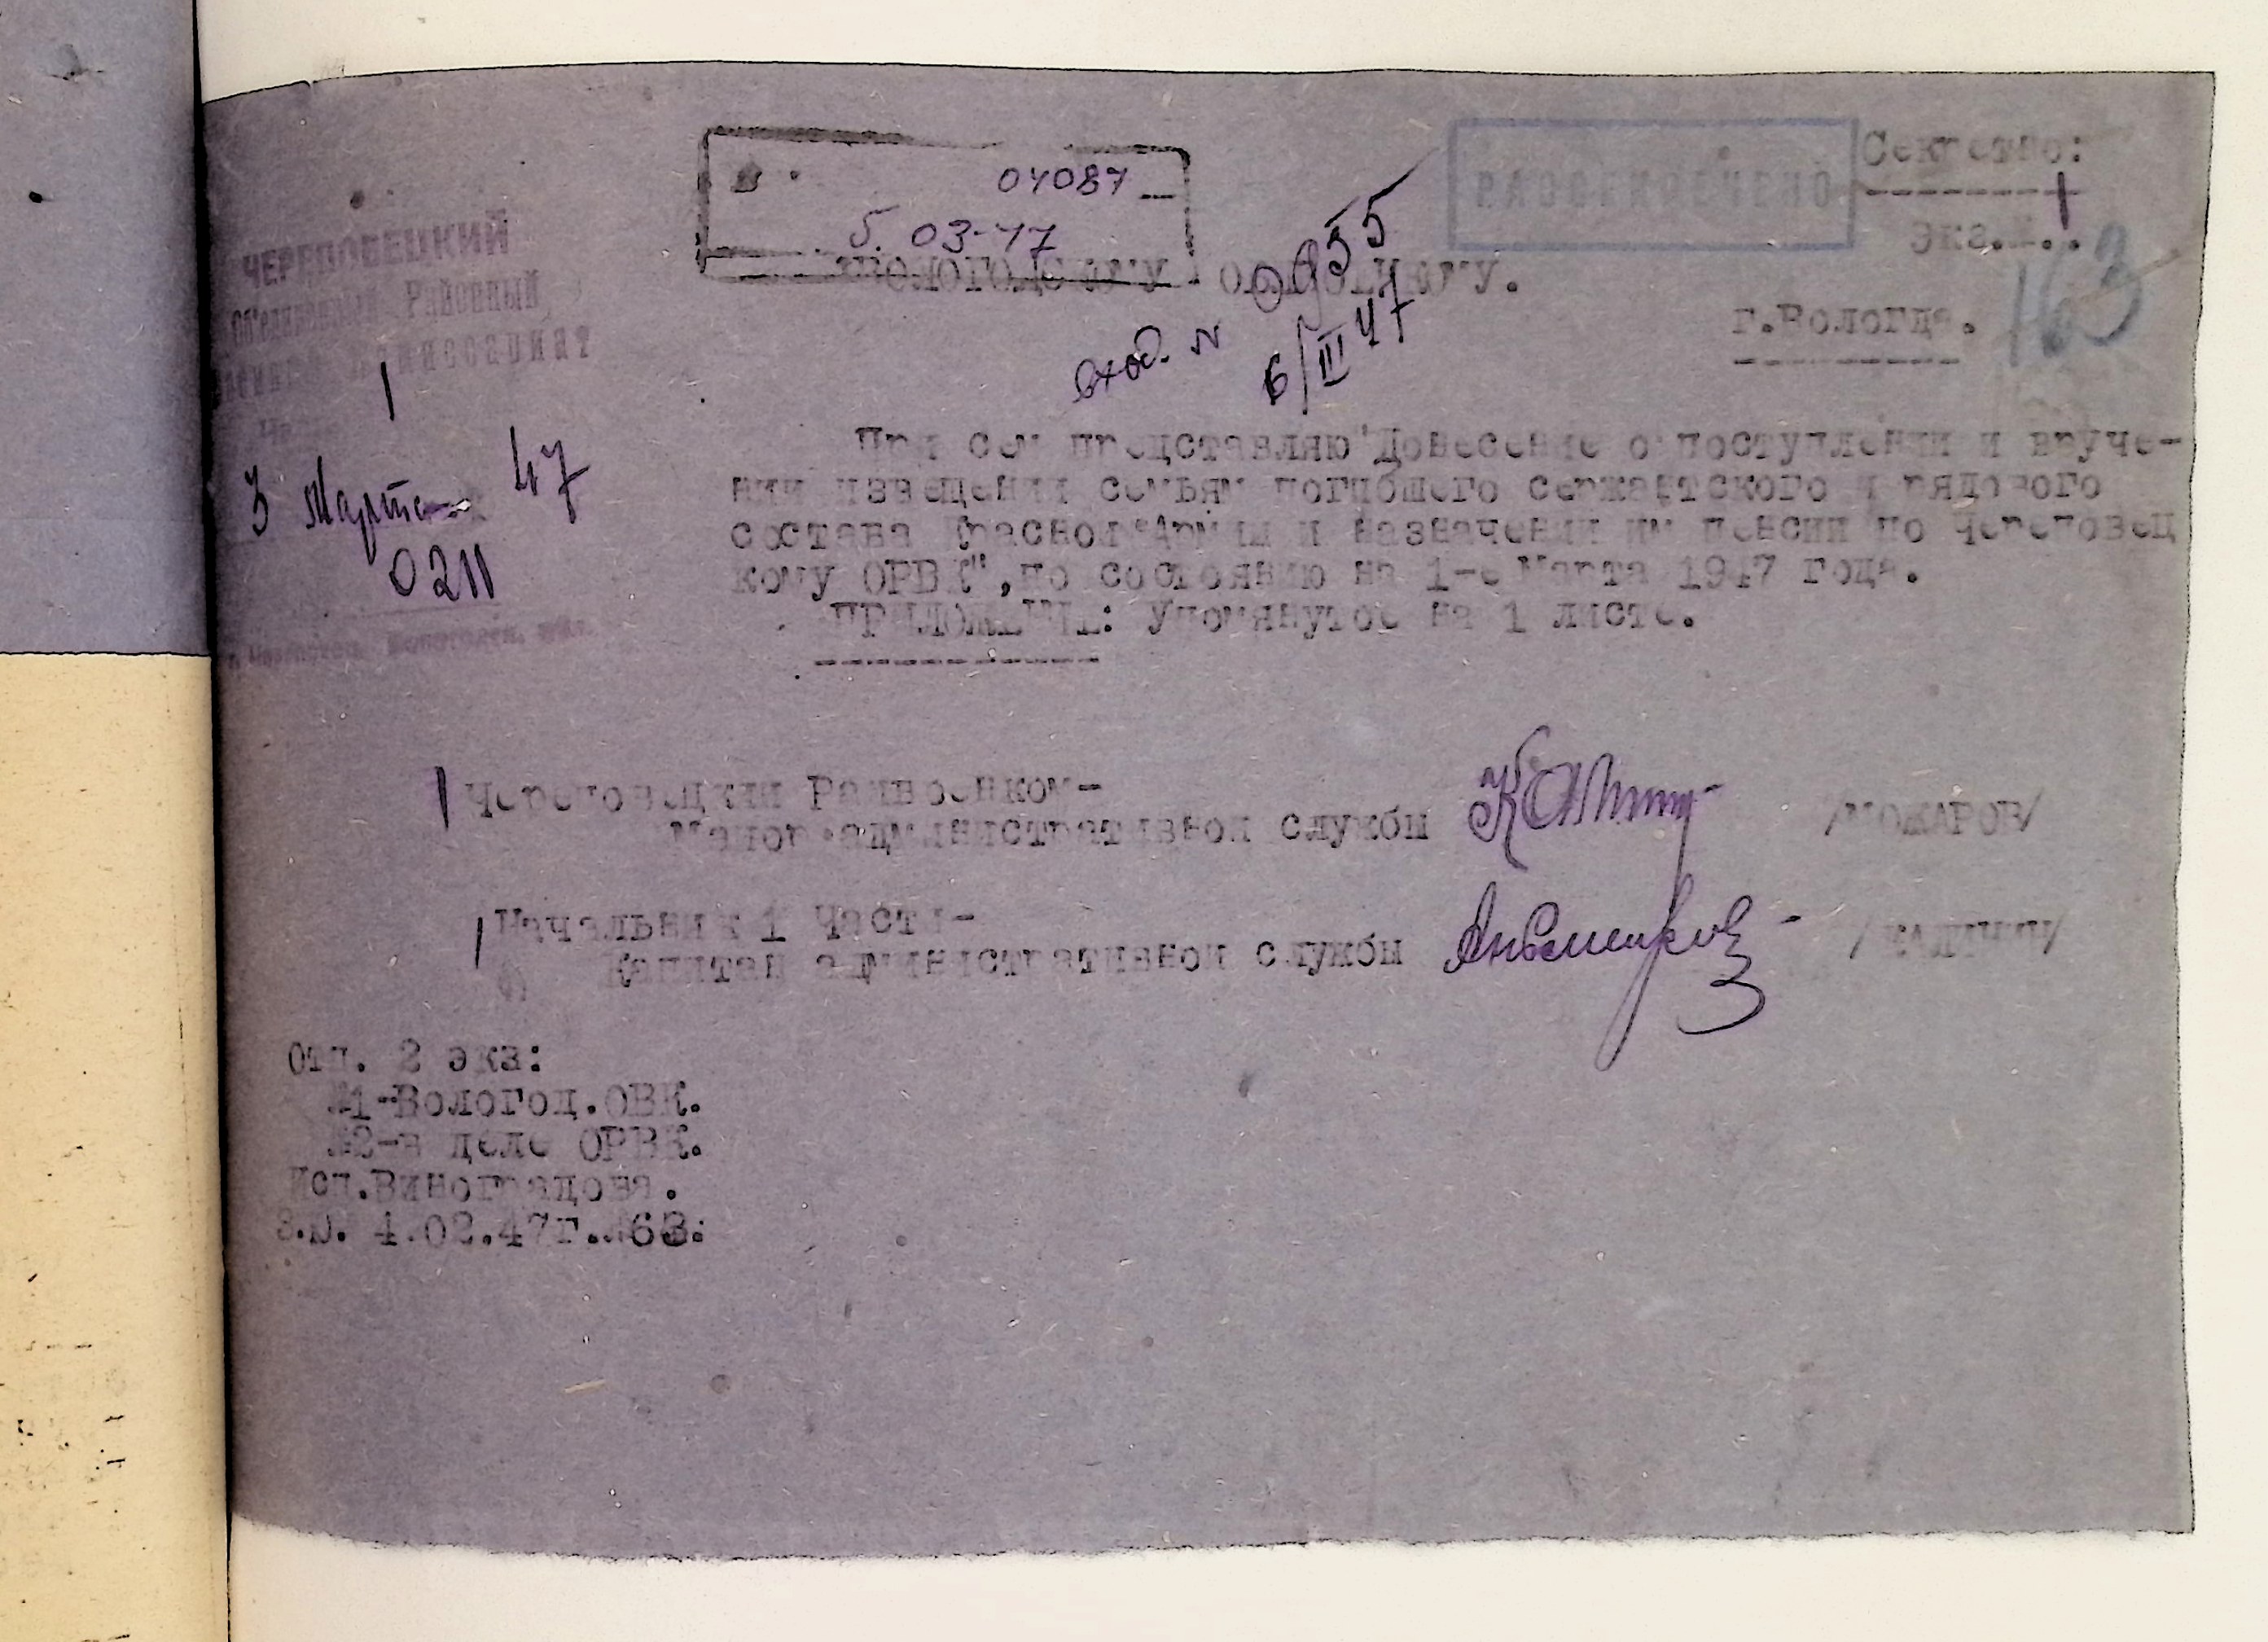 Секретно:
РАССЕКРЕЧЕНО
Экз.№.1
04087
5. 03-47
Вологодскому Облвоенкому.
163
г.Вологда.
вход. N 0955
6/III 47
ЧЕРЕПОВЕЦКИЙ
Об'единенный Районный
Военный Комиссариат
1
3 Марта 47
0211
При сем представляю "Донесение о поступлении и вруче-
нии извещений семьям погибшего сержантского и рядового
состава Красной Армии и назначении им пенсии по Черeповец
кому ОРВК", по состоянию на 1-е Марта 1947 года.
ПРИЛОЖЕНИЕ: Упомянутое на 1 листе.
Череповецкий Райвоенком-
Майор административной службы /МОЖАРОВ/
Начальник 1 Части-
Капитан административной службы
Отп. 2 экз:
№1-Вологод.ОВК.
№2-в деле ОРВК.
Исп.Виноградова.
4.02.47г. 63.